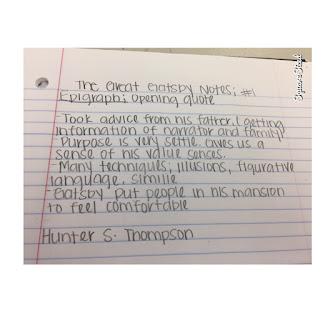 The Great Gatsby Notes; #1
Epigraph; opening quote
-Took advice from his father. (getting
information of narrator and family)
-Purpose is very settle. Gives us a
sense of his value sences.
-Many techniques; illusions, figurative
language, simille
-Gatsby put people in his mansion
to feel comfortable
Hunter S. Thompson